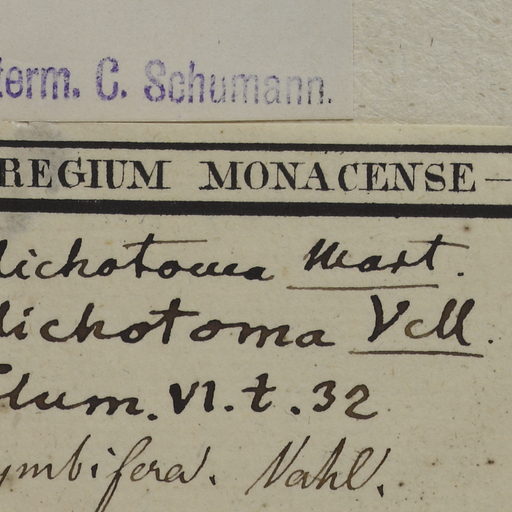 term. C. Schumann.
REGIUM MONACENSE —
dichotoma Mart.
dichotoma Vell.
Flum. VI. t. 32
ymbifera. Vahl.